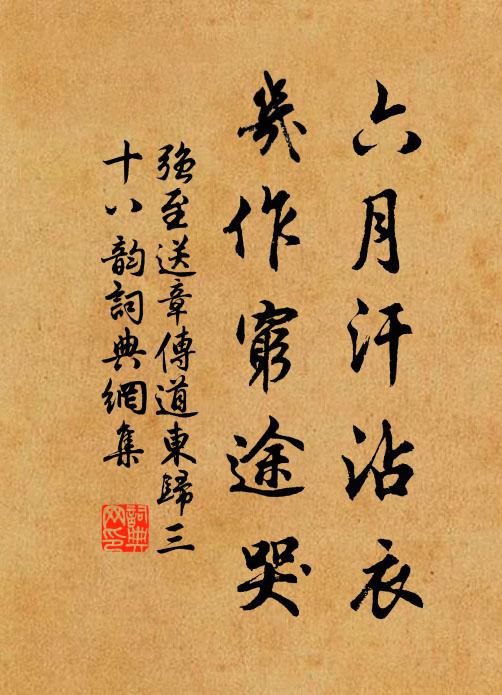 六月汗沾衣
幾作窮途哭
強至送章傳道東歸三
十八韵詞典網集
詞典网印